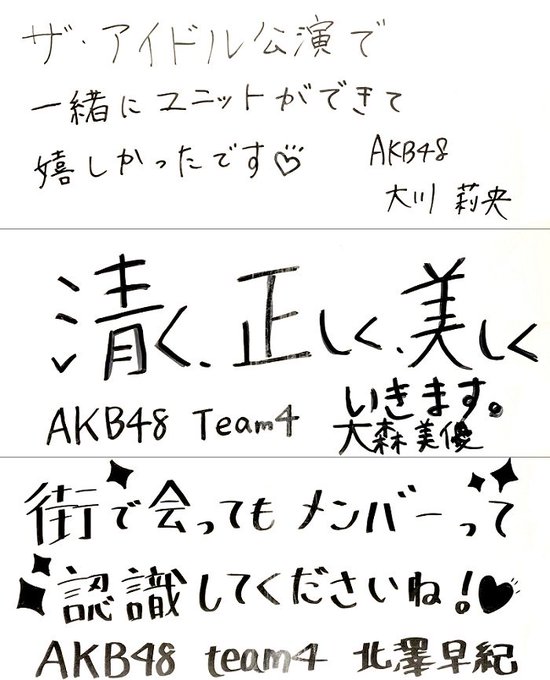 ザ・アイドル公演で
一緒にユニットができて
嬉しかったです♡
AKB48
大川 莉央
清く、正しく、美しく
いきます。
AKB48 Team4 大森美優
街で会ってもメンバーって
認識してくださいね!♥
AKB48 team4 北澤早紀